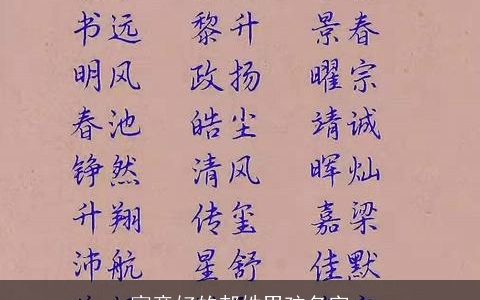 书远 黎升 景春
明风 政扬 曜宗
春池 皓尘 靖诚
铮然 清风 晖灿
升翔 传玺 嘉梁
沛航 星舒 佳默
寓意好的 姓男孩名字